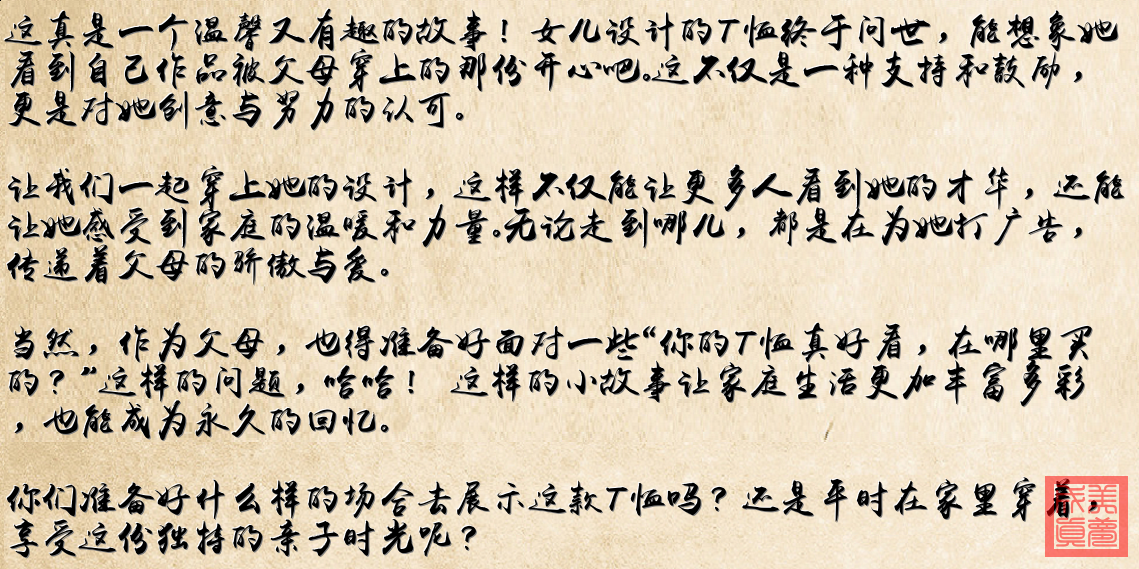 这真是一个温馨又有趣的故事！女儿设计的T恤终于问世，能想象她
看到自己作品被父母穿上的那份开心吧。这不仅是一种支持和鼓励，
更是对她创意与努力的认可。
让我们一起穿上她的设计，这样不仅能让更多人看到她的才华，还能
让她感受到家庭的温暖和力量。无论走到哪儿，都是在为她打广告，
传递着父母的骄傲与爱。
当然，作为父母，也得准备好面对一些“你的T恤真好看，在哪里买
的？”这样的问题，哈哈！ 这样的小故事让家庭生活更加丰富多彩
，也能成为永久的回忆。
你们准备好什么样的场合去展示这款T恤吗？还是平时在家里穿着，
享受这份独特的亲子时光呢？
美梦成真